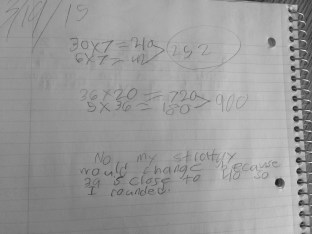 30x7=210
6x7=42 > 252
36x20=720
5x36=180 > 900
No my strategy
would change because
39 is close to 40 so
I rounded